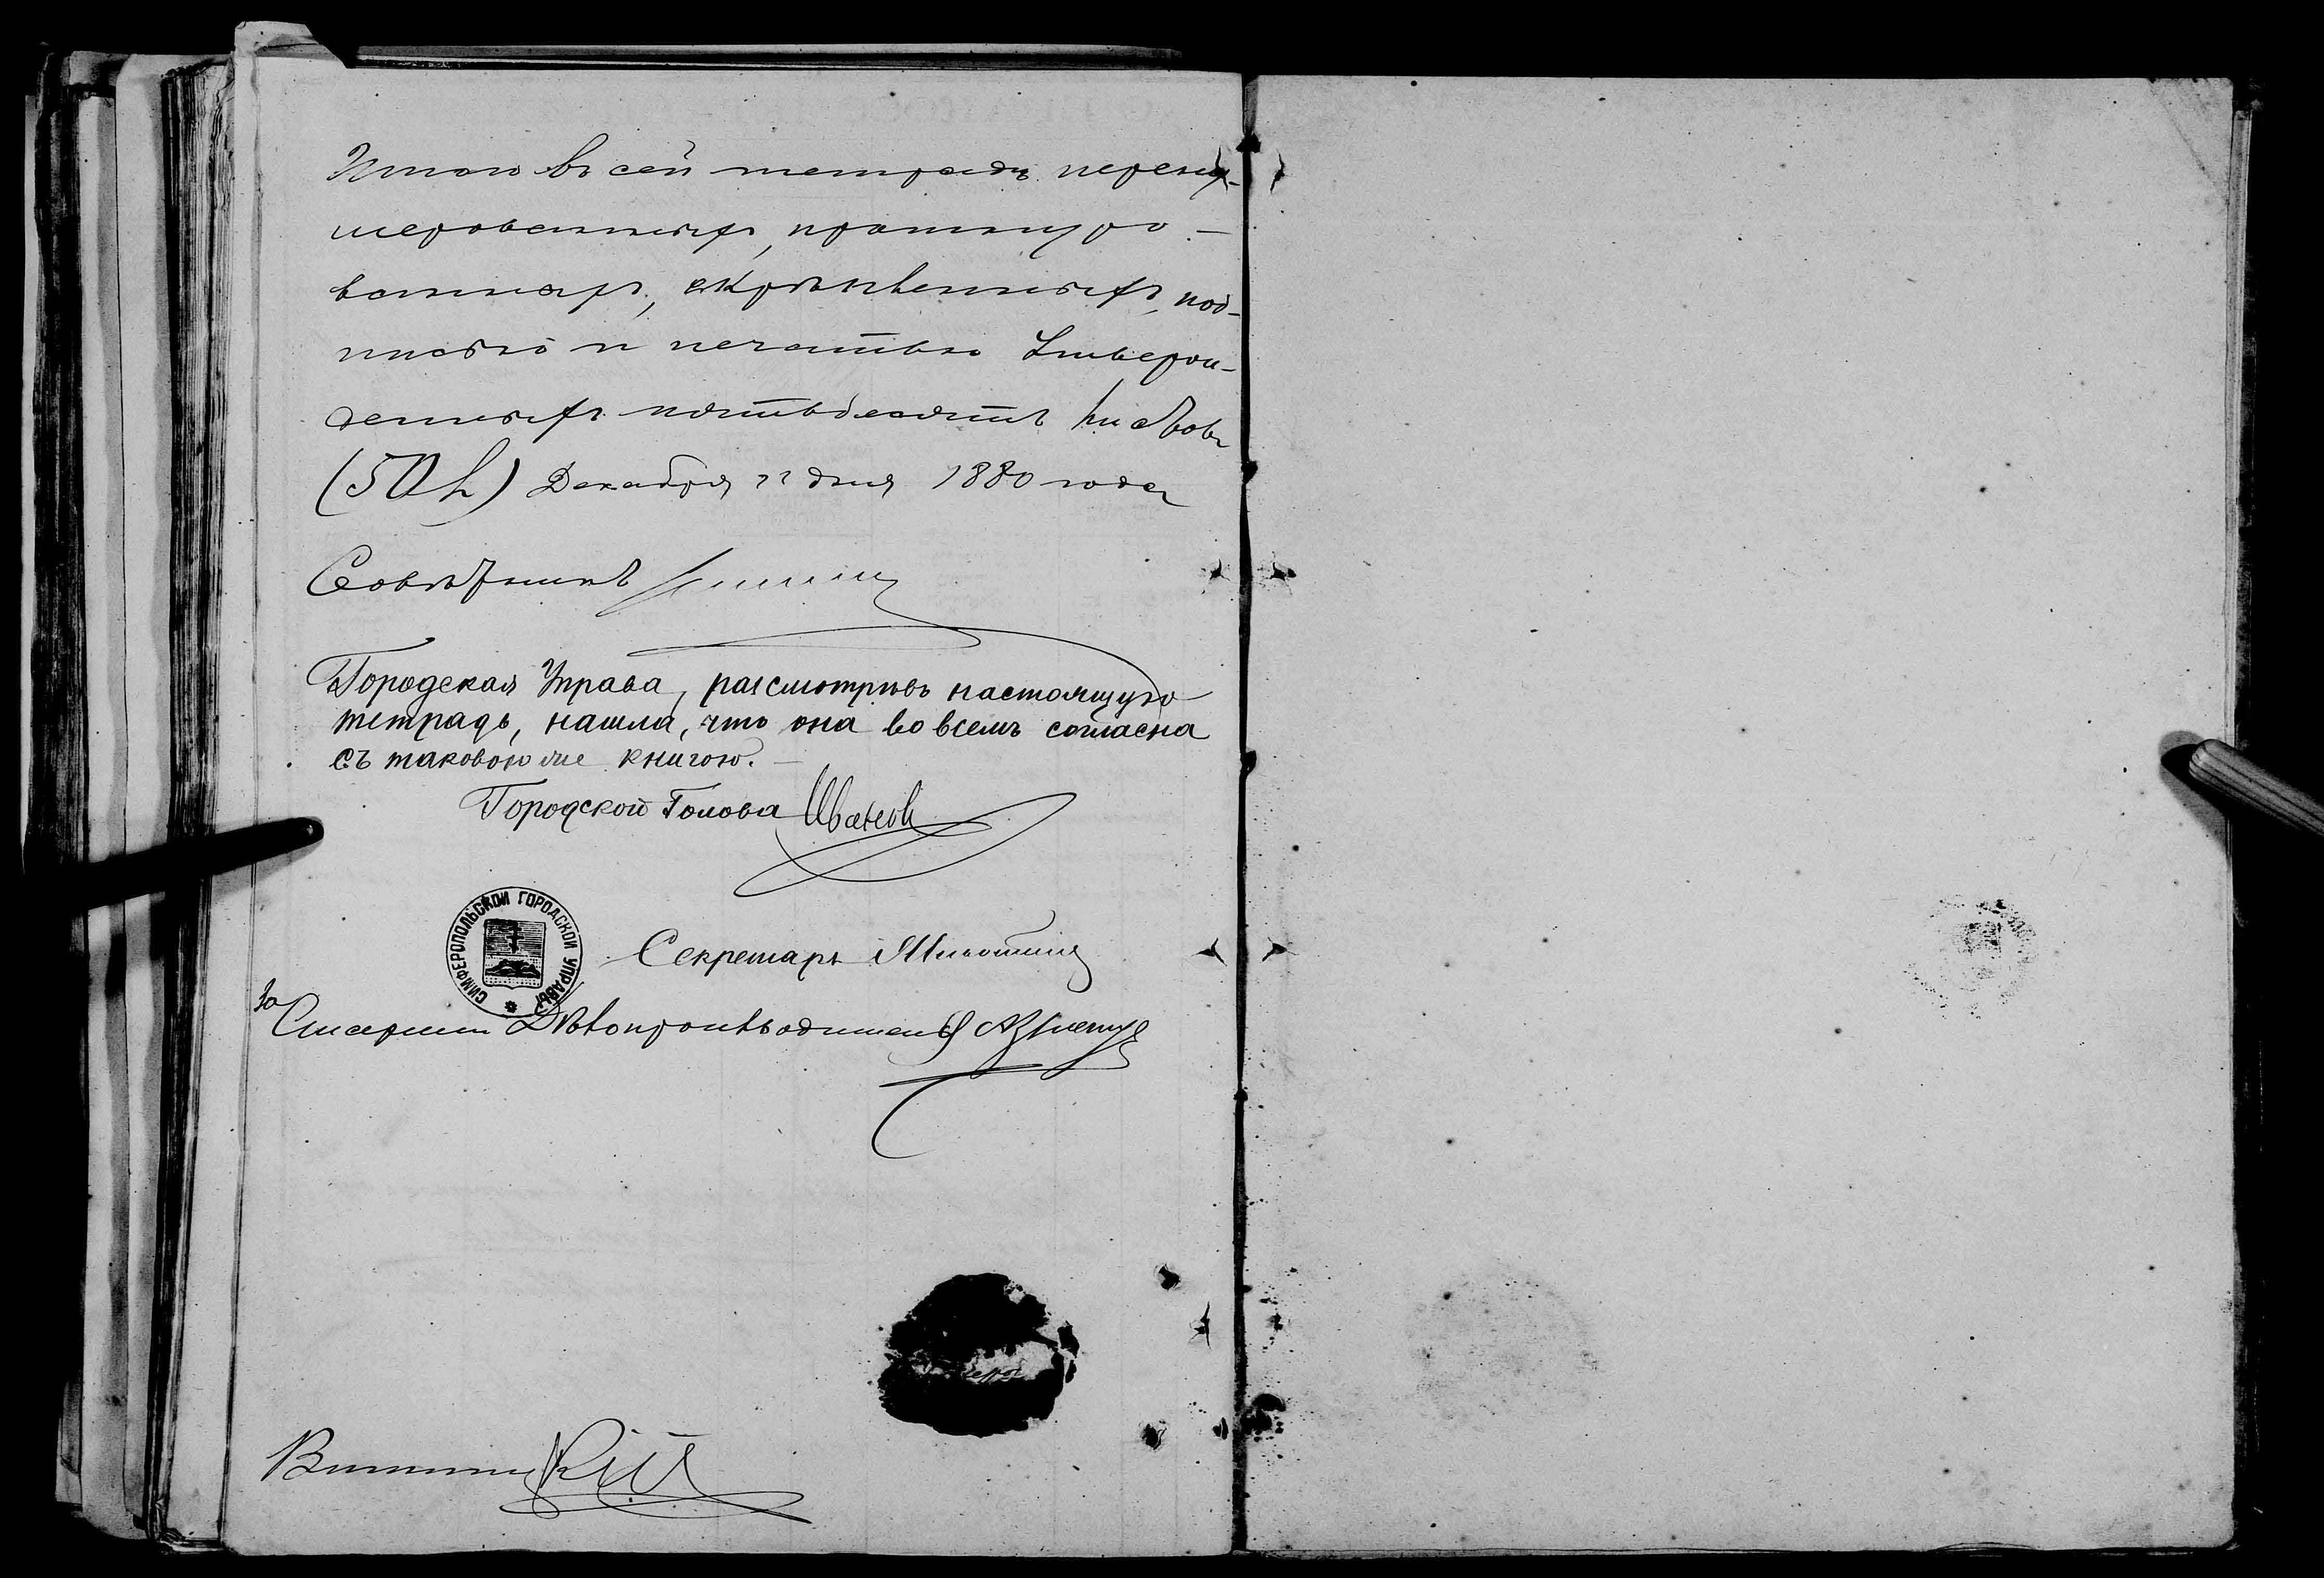 Итого въ сей тетради перену-
мерованныхъ, прошнуро-
ванныхъ, скрѣпленныхъ под-
писью и печатью Утверж-
денныхъ пятьдесятъ листовъ
(50 л) Декабря 22 дня 1880 года
Совѣтникъ
Городская Управа, разсмотрѣвъ настоящую
тетрадь, нашла, что она во всемъ согласна
съ таковою же книгою.
Городской Голова Иванов
СИМФЕРОПОЛЬСКОЙ ГОРОДСКОЙ УПРАВЫ
Секретарь
За
Дѣлопроизводителя